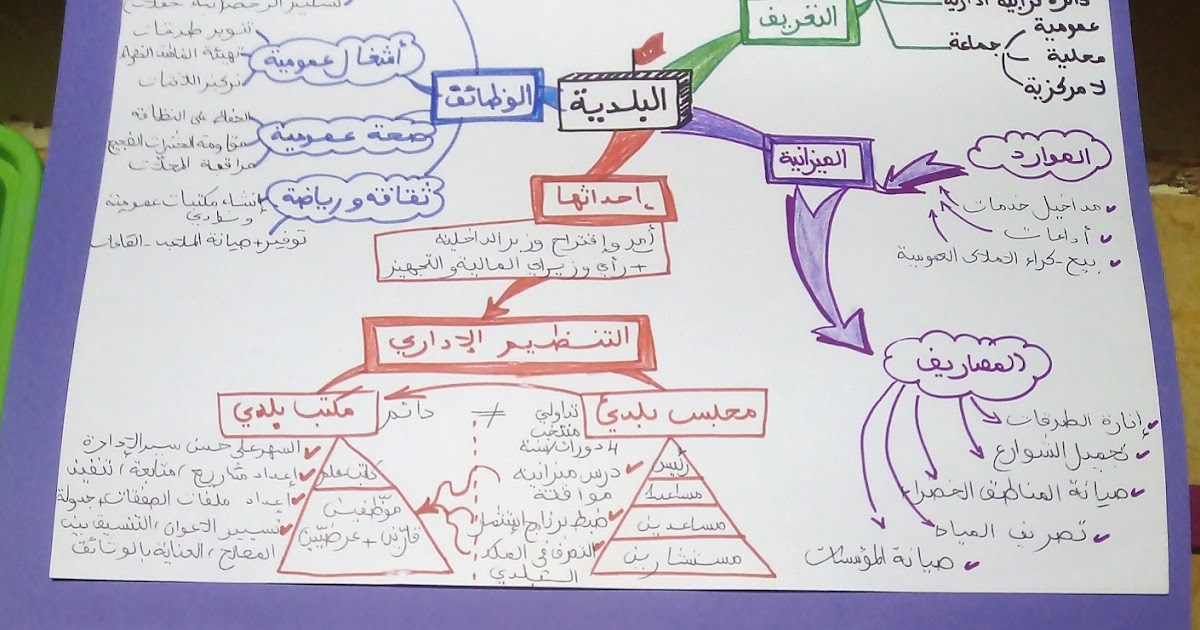 البلدية
التعريف
دائرة ترابية إدارية
جماعة
عمومية
محلية
لا مركزية
الميزانية
الموارد
مداخيل خدمات
أداءات
بيع - كراء الأملاك العمومية
المصاريف
إنارة الطرقات
تجميل الشوارع
صيانة المناطق الخضراء
تصريف المياه
صيانة المؤسسات
الوظائف
أشغال عمومية
تنوير طرقات
صحة عمومية
الحفاظ على النظافة
مقاومة الحشرات
مراقبة المحلات
ثقافة ورياضة
إنشاء مكتبات عمومية
توفير + صيانة الملاعب - القاعات
إحداثها
أمر وإقتراح وزير الداخلية
+ رأي وزيراي المالية والتجهيز
التنظيم الإداري
مجلس بلدي
تداولي
منتخب
4 دورات/سنة
≠
رئيس
مساعد
مساعدين
مستشارين
درس ميزانية
موافقة
ضبط برنامج
التصرف في
مكتب بلدي
دائم
كاتب عام
موظفين
قارين + عرضيين
السهر على حسن سير الإدارة
إعداد مشاريع (متابعة) تنفيذ
إعداد ملفات الصفقات + جدولة
تسيير الأعوان (التنسيق بين
المصالح) العناية بالوثائق